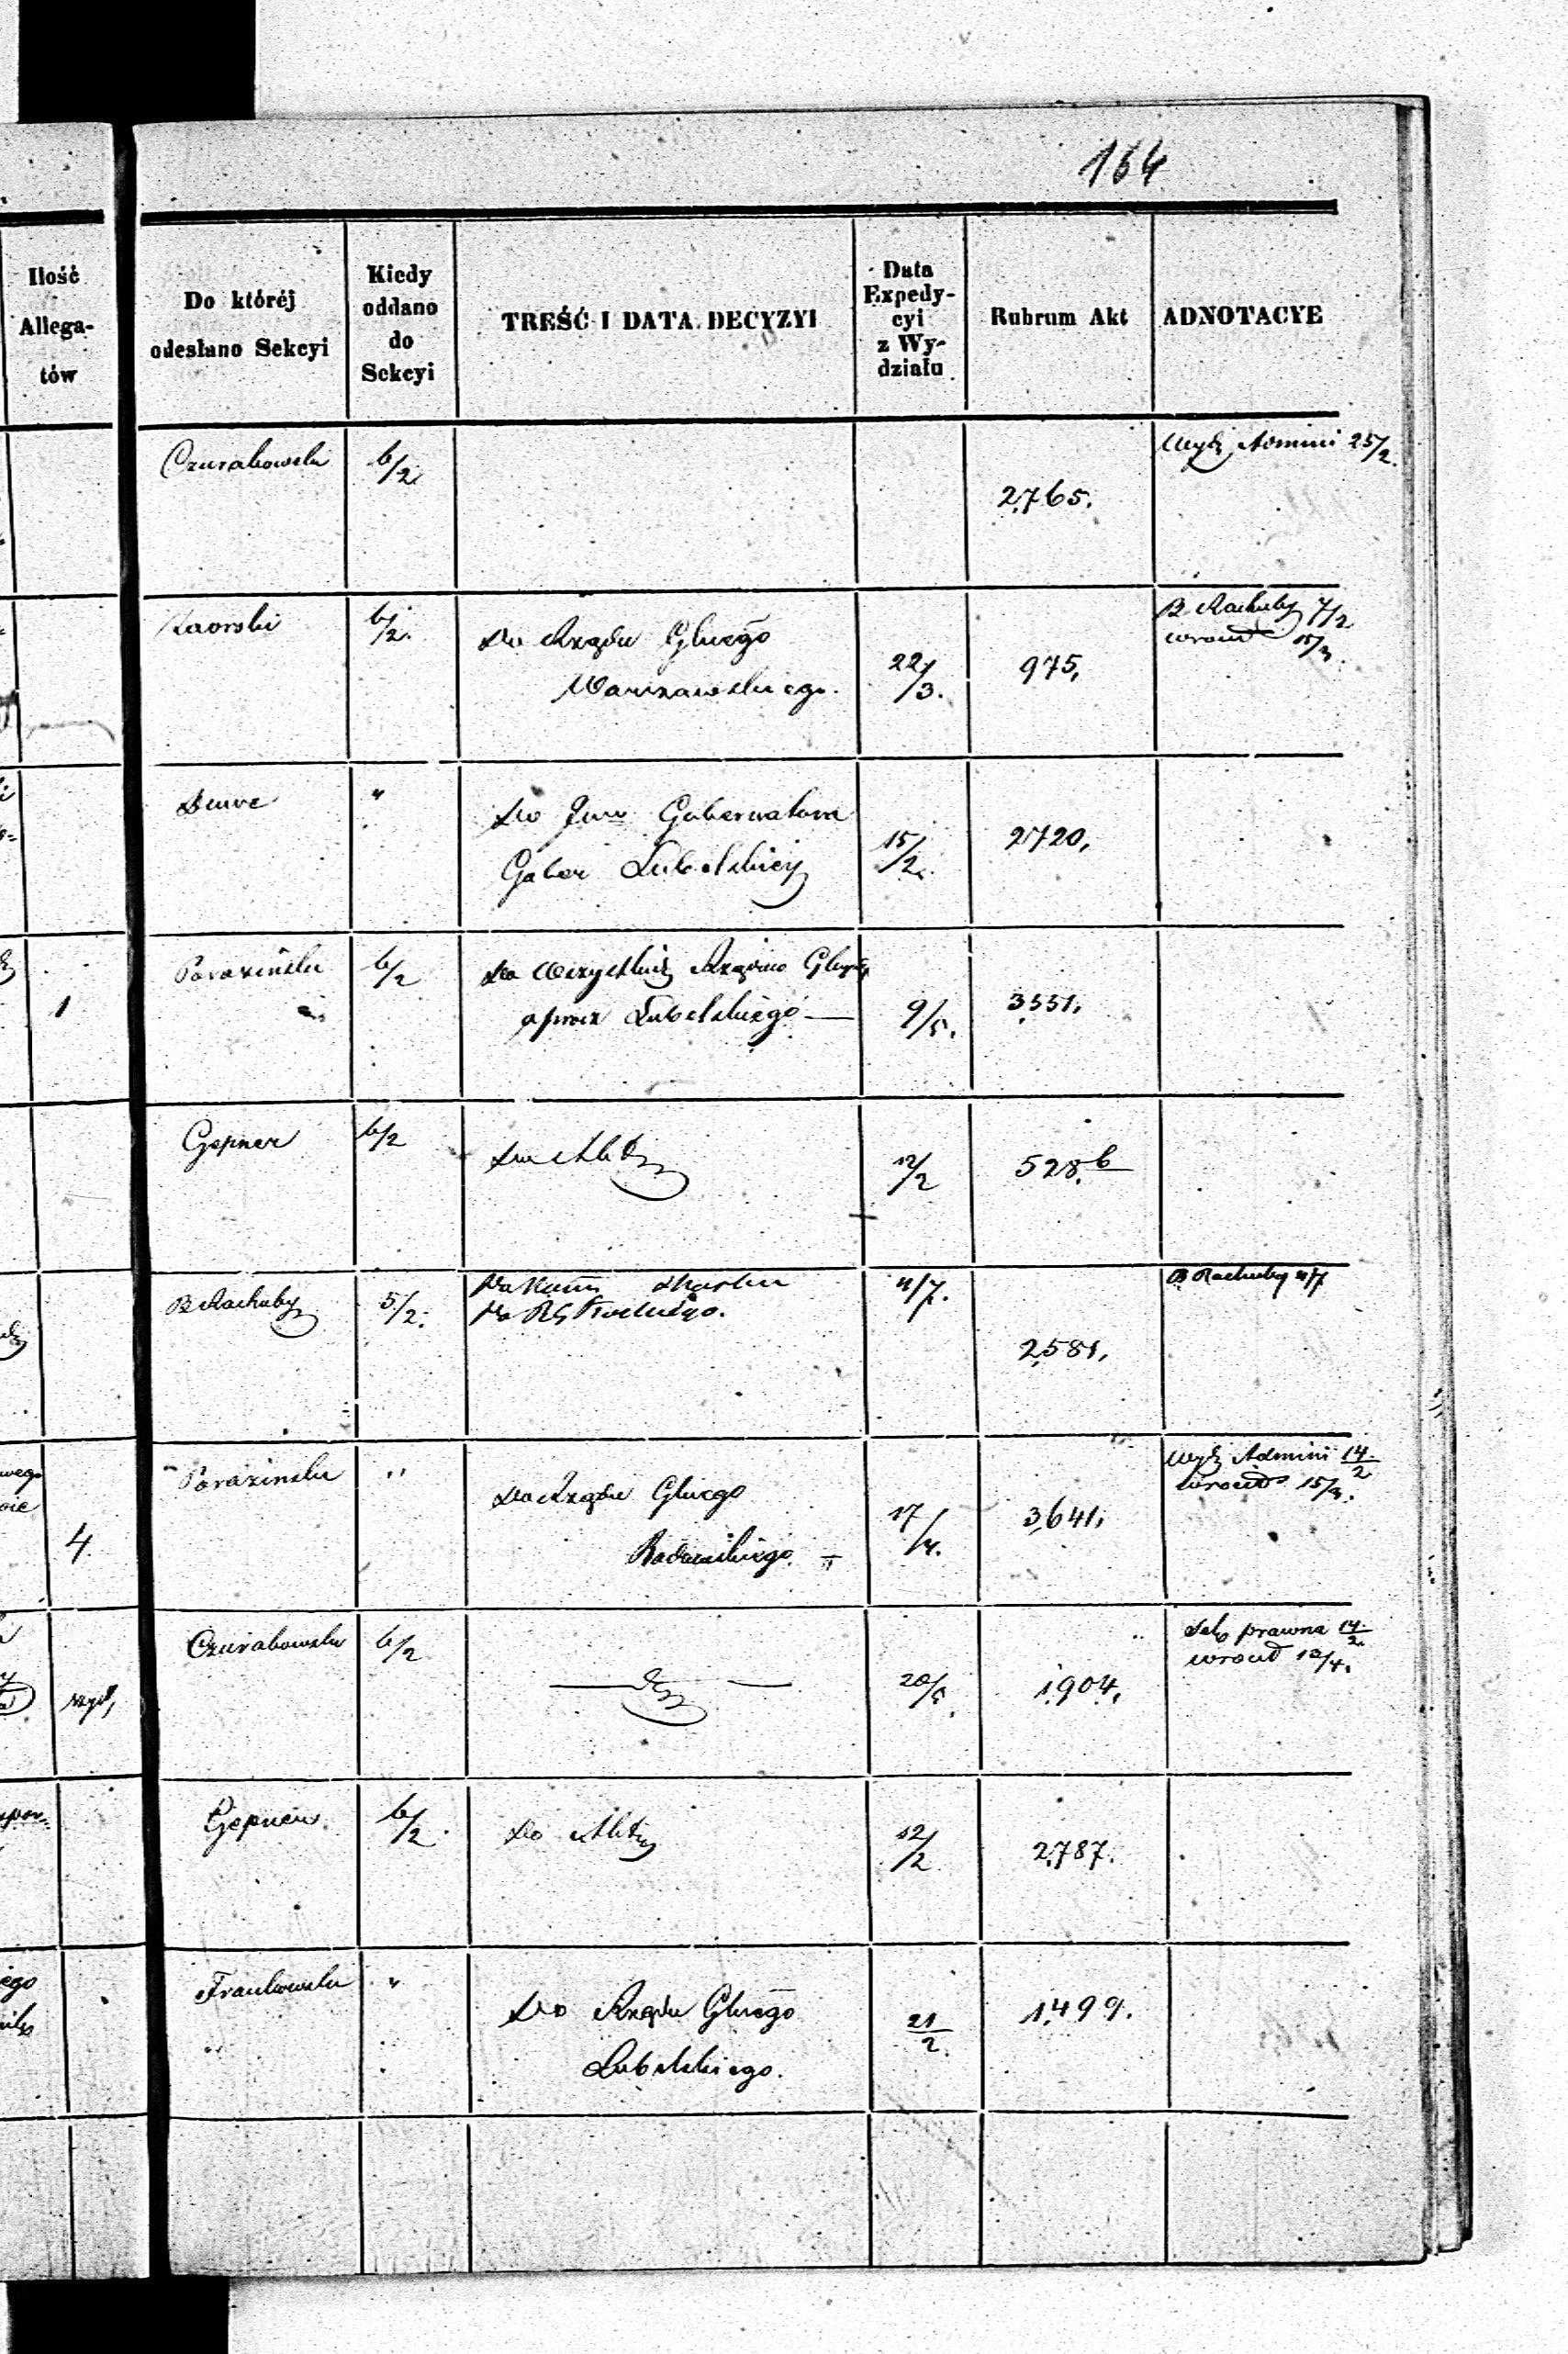 164
Ilość
Allega-
tów
Do któréj
odesłano Sekcyi
Kiedy
oddano
do
Sekcyi
TREŚĆ I DATA DECYZYI
Data
Expedy-
cyi
z Wy-
działu
Rubrum Akt
ADNOTACYE
Czurabowski 6/2 2765. Wydz Admini 25/2.
6/2. Do Rządu Głnego
Warszawskiego. 22/3. 975. B Rachuby 7/2
wrócił 15/3.
" Do Jwo Gubernatora
Guber Lubelskiej 15/2. 2720.
1 Paraziński 6/2 Do Wszystkich Rządów Głnych
oprócz Lubelskiego — 9/5. 3331.
Gepner 6/2 12/2 528.b
B Rachuby 5/2. Do Kom Skarbu
4/7. 2581. B Rachuby 4/7
4 Parazinski " Do Rządu Głnego
Radomskiego. 17/4. 3641. Wydz Admini 14/2
wrócił 15/3.
Czurabowski 6/2 20/5. 1904. Sek prawna 14/2.
wrócił 10/4.
Gepner 6/2. Do 12/2 2787.
Frankowski " Do Rządu Głnego
Lubelskiego. 21/2. 1499.